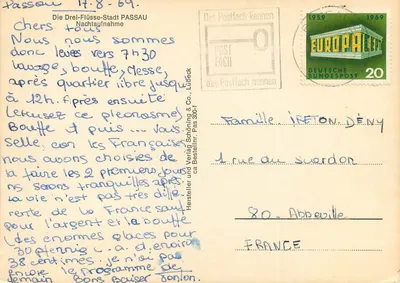 Passau 17.8.69.
Die Drei-Flüsse-Stadt PASSAU
Nachtaufnahme
Chers tous
Nous nous sommes
donc levés vers 7h30
lavage, bouffe, Messe,
après quartier libre jusqu'
à 12h. puis ensuite
(excusez ce pleonasme)
Bouffe et puis ... Vais-
selle, con les Françaises
nous avons choisies de
la faire les 2 premiers jours
ns serons tranquilles après
La vie n'est pas très diffé-
rente de la France sauf
pour l'argent et la bouffe
(des enormes glaces pour
30 pfennig - a. d. environ
38 centimes. je n'ai pas
encore le programme de
demain Bons Baiser
Hersteller und Verlag Schöning & Co., Lübeck
ca Bestellnr. Pas 300
Der Postfach können
das Postfach nehmen
1959 1969
EUROPA CEPT
DEUTSCHE BUNDESPOST 20
Famille IRETON-DENY
1 rue du
80. Abbeville
FRANCE